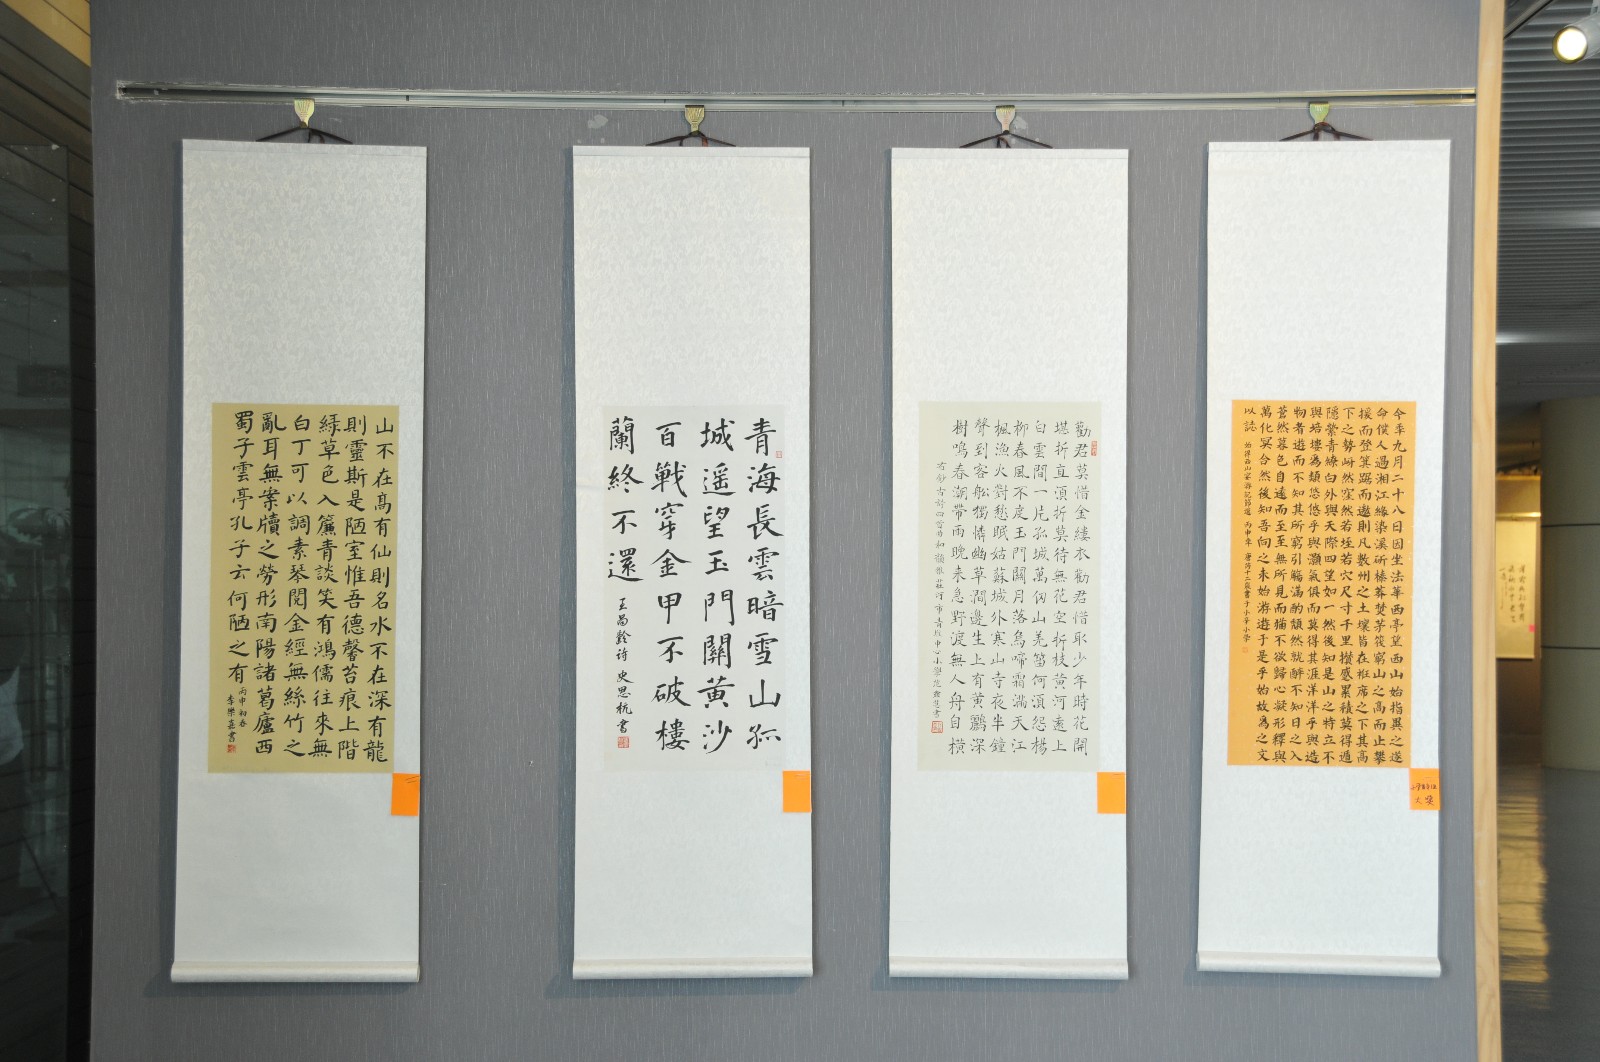 山不在高有仙則名水不在深有龍
則靈斯是陋室惟吾德馨苔痕上階
綠草色入簾青談笑有鴻儒往來無
白丁可以調素琴閱金經無絲竹之
亂耳無案牘之勞形南陽諸葛廬西
蜀子雲亭孔子云何陋之有
丙申初春
李樂嘉書
青海長雲暗雪山孤
城遥望玉門關黃沙
百戰穿金甲不破樓
蘭終不還
王昌齡詩 史思杭書
勸君莫惜金縷衣勸君惜取少年時花開
堪折直須折莫待無花空折枝黃河遠上
白雲間一片孤城萬仞山羌笛何須怨楊
柳春風不度玉門關月落烏啼霜滿天江
楓漁火對愁眠姑蘇城外寒山寺夜半鐘
聲到客船獨憐幽草澗邊生上有黃鸝深
樹鳴春潮帶雨晚來急野渡無人舟自橫
右鈔古詩四首
今年九月二十八日因坐法華西亭望西山始指異之遂
命僕人過湘江緣染溪斫榛莽焚茅茷窮山之高而止攀
援而登箕踞而遨則凡數州之土壤皆在衽席之下其高
下之勢岈然窪然若垤若穴尺寸千里攢蹙累積莫得遯
隱縈青繚白外與天際四望如一然後知是山之特立不
與培塿為類悠悠乎與灝氣俱而莫得其涯洋洋乎與造
物者遊而不知其所窮引觴滿酌頹然就醉不知日之入
蒼然暮色自遠而至至無所見而猶不欲歸心凝形釋與
萬化冥合然後知吾向之未始游游于是乎始故為之文
以誌 始得西山宴游記節選 丙申年
大獎